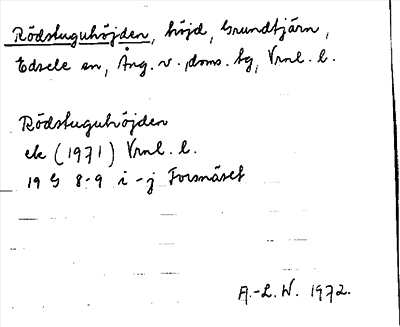 Rödstuguhöjden, höjd, Grundtjärn,
Edsele sn, Ång. v. doms. tg, Vrnl. l.
Rödstuguhöjden
ek (1971) Vrnl. l.
19 G 8-9 i-j Forsnäset
A.-L. W. 1972.